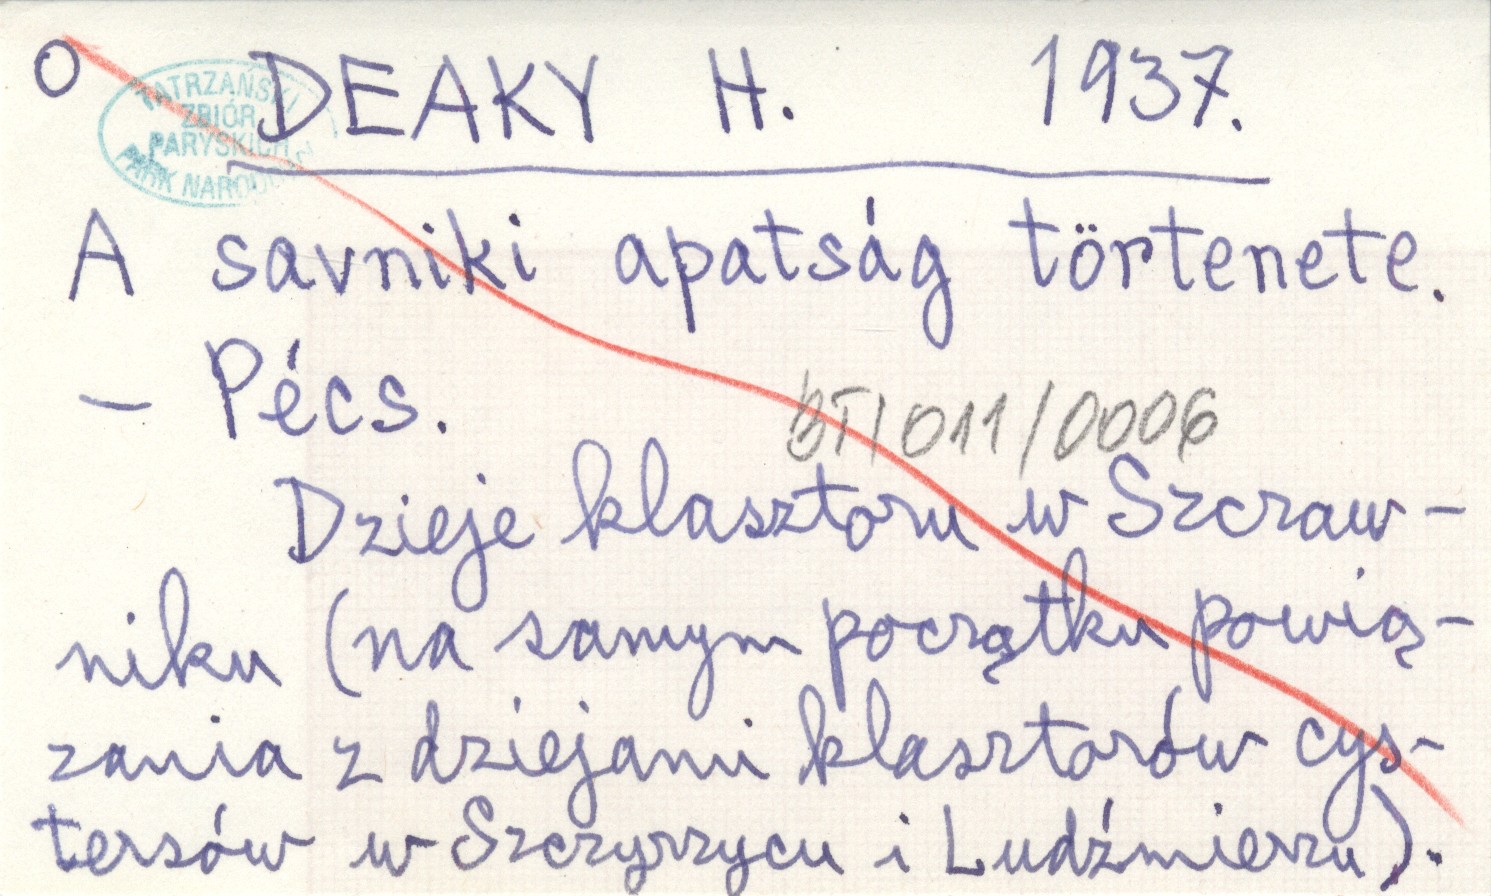 O DEAKY H. 1937.
TATRZAŃSKI
ZBIÓR
PARYSKICH
PARK NARODOW
A savniki apatság törtenete.
– Pécs.
BT/011/0006
Dzieje klasztoru w Szczaw-
niku (na samym początku powią-
zania z dziejami klasztorów cys-
tersów w Szczyrzycu i Ludźmierzu).